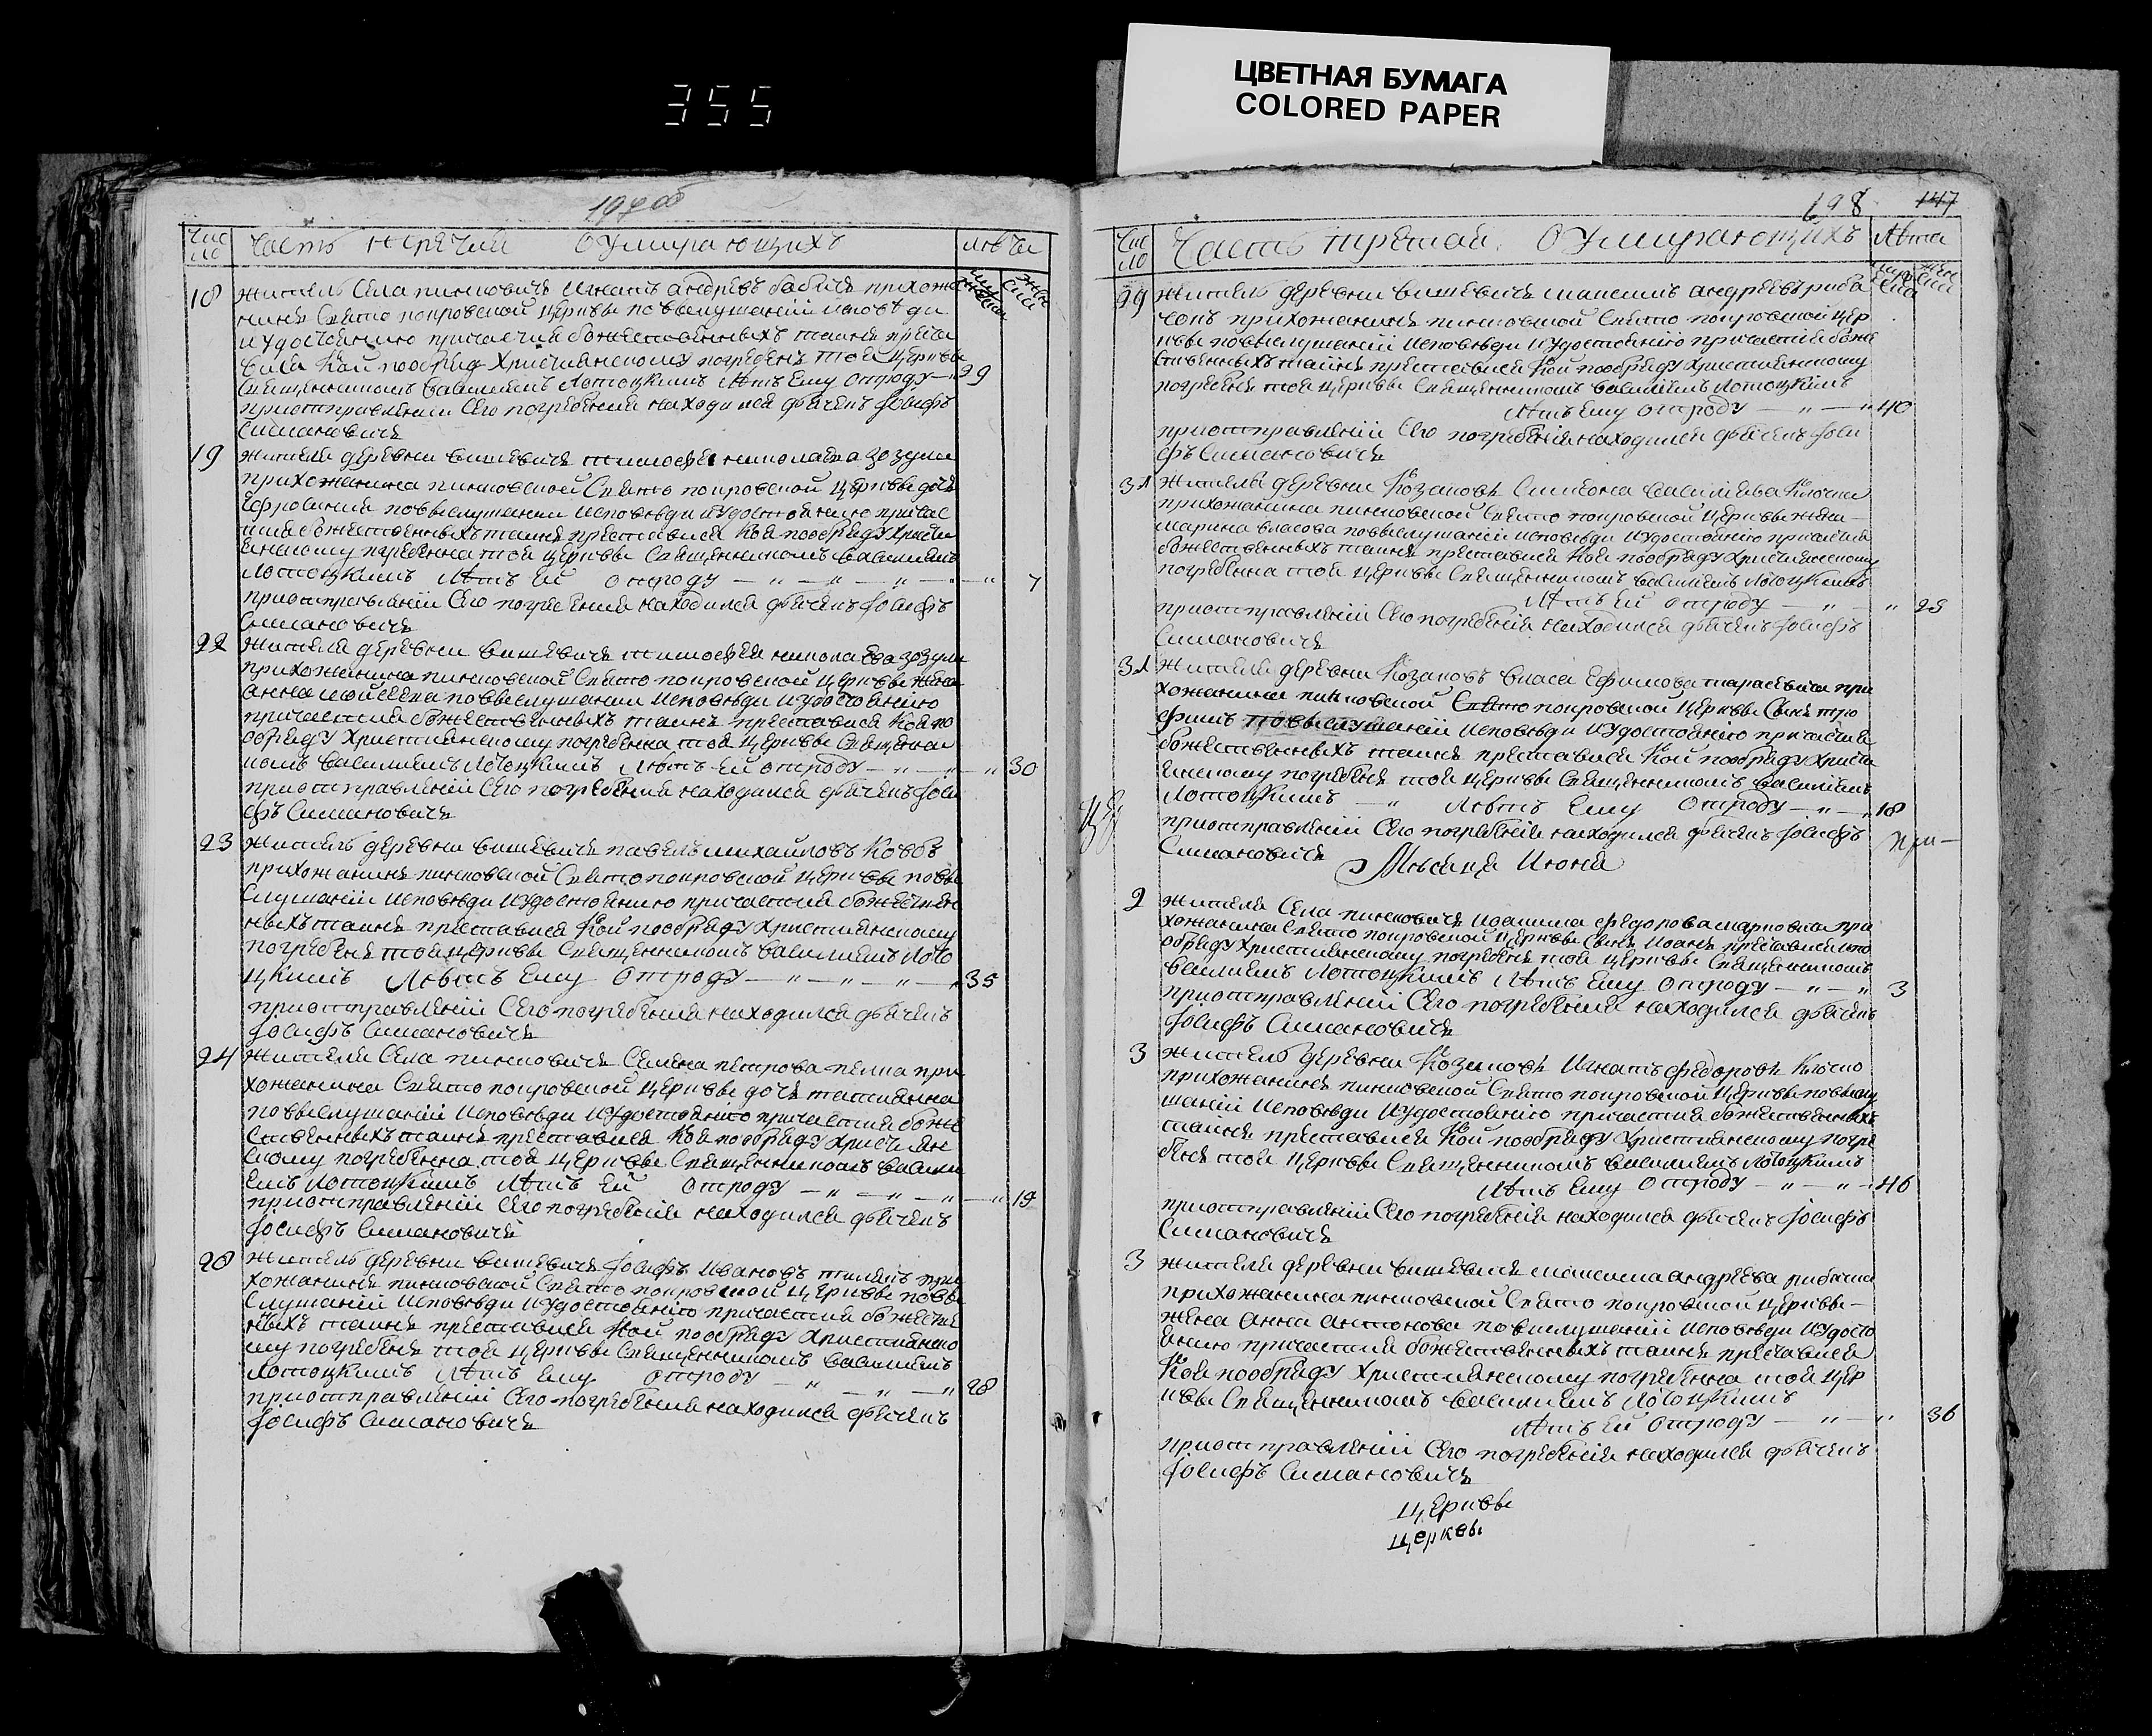 355
ЦВЕТНАЯ БУМАГА
COLORED PAPER
197об
Чис
ло
Часть третия О Умирающихъ
лѣта
муж
жен
ски
18 житель села пинковичь Игнатъ андревъ бабичь прихожа
нинъ Свято покровской Церквы повыслушании исповѣди
и удостоению причастия божественныхъ таинъ преста
вися Кой пообряду Християнскому погребенъ тоей Церквы
Священникомъ василиемъ Лотоцкимъ лѣтъ Ему отроду — 29
приотправлении Сего погребения находился дьячекъ Иосифъ
Симановичь
19 жителя деревни вишевичь тимофея николаева зозули
прихожанина пинковской Свято покровской Церквы дочь
Ефросиния повыслушании исповѣди и удостоению причас
тия божественныхъ таинъ преставися Коя пообряду Христи
янскому погребенна тоей Церквы Священникомъ василиемъ
Лотоцкимъ лѣтъ Ей отроду — " — " — " — " 7
приотправлении Сего погребения находился дьячекъ Иосифъ
Симановичь
22 жителя деревни вишевичь тимофея николаева зозули
прихожанина пинковской Свято покровской Церквы жена
анна мойсеева повыслушании исповѣди и удостоению
причастия божественныхъ таинъ преставися Коя по
обряду Християнскому погребенна тоей Церквы Священни
комъ василиемъ Лотоцкимъ лѣтъ Ей отроду — " — " 30
приотправлении Сего погребения находился дьячекъ Иоси
фъ Симановичь
23 житель деревни вишевичь павелъ михайловъ Ковбъ
прихожанинъ пинковской Свято покровской Церквы повы
слушании исповѣди и удостоению причастия божествен
ныхъ таинъ преставися Кой пообряду Християнскому
погребенъ тоей Церквы Священникомъ василиемъ Лото
цкимъ лѣтъ Ему отроду — " — " — " — 35
приотправлении Сего погребения находился дьячекъ
Иосифъ Симановичь
24 жителя Села пинковичь Семена петрова при
хожанина Свято покровской Церквы дочь татиянна
повыслушании исповѣди и удостоению причастия боже
ственныхъ таинъ преставися Коя пообряду Християн
скому погребенна тоей Церквы Священникомъ васили
емъ Лотоцкимъ лѣтъ Ей отроду — " — " — " — " 19
приотправлении Сего погребения находился дьячекъ
Иосифъ Симановичь
28 житель деревни вишевичь Иосифъ Ивановъ при
хожанинъ пинковской Свято покровской Церквы повы
слушании исповѣди и удостоению причастия божестве
ныхъ таинъ преставися Кой пообряду Християнско
му погребенъ тоей Церквы Священникомъ василиемъ
Лотоцкимъ лѣтъ Ему отроду — " — " — " 28
приотправлении Сего погребения находился дьячекъ
Иосифъ Симановичь
198 147
Чис
ло
Часть третияя О Умирающихъ
Лѣта
29 житель деревни вишевичь максимъ андреевъ риба
чокъ прихожанинъ пинковской Свято покровской Цер
квы повыслушании исповѣди и удостоению причастия боже
ственныхъ таинъ преставися Кой пообряду Християнскому
погребенъ тоей Церквы Священникомъ василиемъ Лотоцкимъ
лѣтъ Ему отроду — " — " 40
приотправлении Сего погребения находился дьячекъ Иоси
фъ Симановичь
31 жителя деревни Козаковъ Симеона василиева Клочка
прихожанина пинковской Свято покровской Церквы жена —
марина власова повыслушании исповѣди и удостоению причастия
божественныхъ таинъ преставися Коя пообряду Християнскому
погребенна тоей Церквы Священникомъ василиемъ Лотоцкимъ
лѣтъ Ей отроду — " — " 25
приотправлении Сего погребения находился дьячекъ Иосифъ
Симановичь
31 жителя деревни Козаковъ власа Ефимова тарасевича при
хожанина пинковской Свято покровской Церквы Сынъ тро
фимъ повыслушании исповѣди и удостоению причастия
божественныхъ таинъ преставися Кой пообряду Христи
янскому погребенъ тоей Церквы Священникомъ василиемъ
Лотоцкимъ — " лѣтъ Ему отроду — " — 18
приотправлении Сего погребения находился дьячекъ Иосифъ
Симановичь
при—
Мѣсяца Июня
2 жителя Села пинковичь Иоакима федорова марковича при
хожанина Свято покровской Церквы Сынъ Иоанъ преставися ипо
обряду Християнскому погребенъ тоей Церквы Священникомъ
василиемъ Лотоцкимъ лѣтъ Ему отроду — " — " 3
приотправлении Сего погребения находился дьячекъ
Иосифъ Симановичь
3 житель деревни Козаковъ Игнатъ федоровъ Клочко
прихожанинъ пинковской Свято покровской Церквы повыслу
шании исповѣди и удостоению причастия божественныхъ
таинъ преставися Кой пообряду Християнскому погре
бенъ тоей Церквы Священникомъ василиемъ Лотоцкимъ
лѣтъ Ему отроду — " — " — 46
приотправлении Сего погребения находился дьячекъ Иосифъ
Симановичь
3 жителя деревни вишевичь максима андреева рибачка
прихожанина пинковской Свято покровской Церквы —
жена анна антонова повыслушании исповѣди и удосто
ению причастия божественныхъ таинъ преставися
Коя пообряду Християнскому погребенна тоей Цер
квы Священникомъ василиемъ Лотоцкимъ
лѣтъ Ей отроду — " — " 36
приотправлении Сего погребения находился дьячекъ
Иосифъ Симановичь
Церквы
Церквы